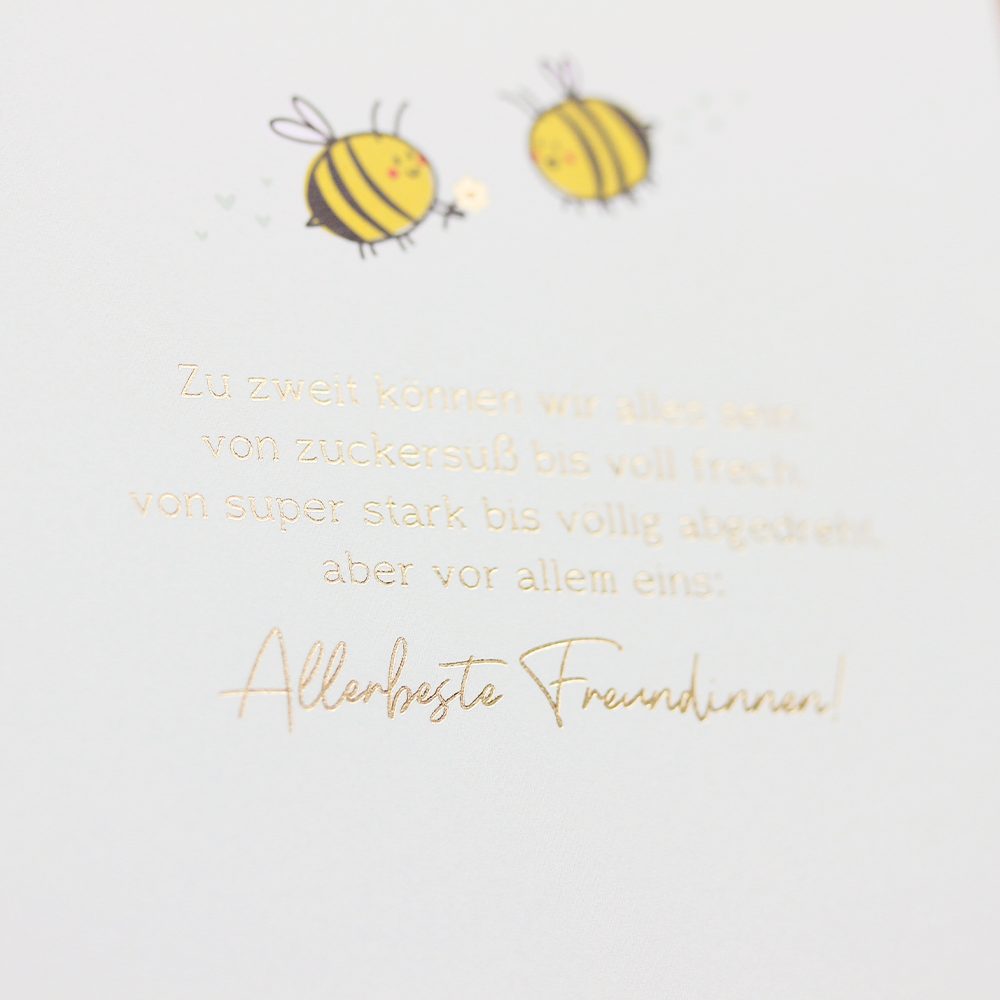 Zu zweit können wir alles sein:
von zuckersüß bis voll frech,
von super stark bis völlig abgedreht,
aber vor allem eins:
Allerbeste Freundinnen!